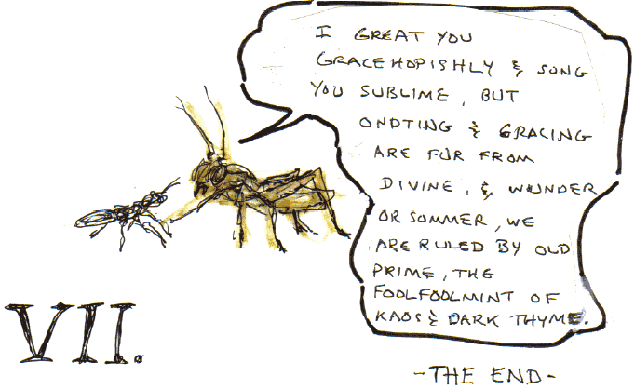 I GREAT YOU
GRACEHOPISHLY & SONG
YOU SUBLIME, BUT
ONDTING & GRACING
ARE FUR FROM
DIVINE, & WUNDER
OR SOMMER, WE
ARE RULED BY OLD
PRIME, THE
FOOLFOOLMINT OF
KAOS & DARK THYME.
VII.
-THE END-